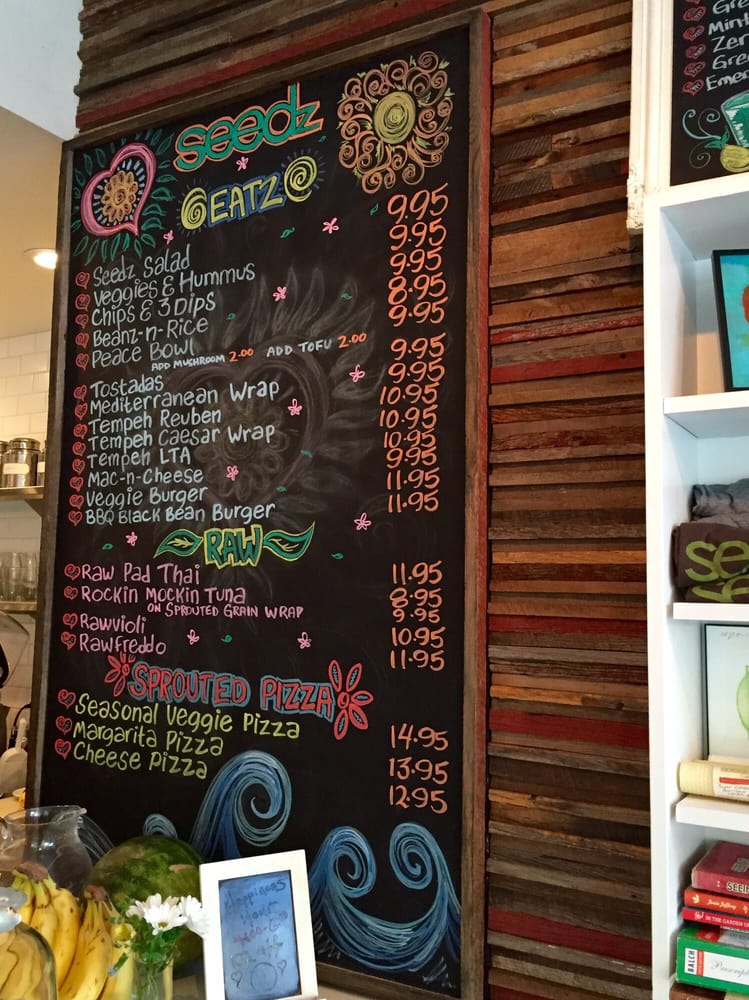 Seedz
EATZ
Seedz Salad 9.95
Veggies & Hummus 9.95
Chips & 3 Dips 9.95
Beanz-n-Rice 8.95
Peace Bowl 9.95
ADD MUSHROOM 2.00 ADD TOFU 2.00
Tostadas 9.95
Mediterranean Wrap 9.95
Tempeh Reuben 10.95
Tempeh Caesar Wrap 10.95
Tempeh LTA 10.95
Mac-n-Cheese 9.95
Veggie Burger 11.95
BBQ Black Bean Burger 11.95
RAW
Raw Pad Thai 11.95
Rockin Mockin Tuna 8.95
ON SPROUTED GRAIN WRAP 9.95
Rawvioli 10.95
Rawfreddo 11.95
SPROUTED PIZZA
Seasonal Veggie Pizza 14.95
Margarita Pizza 13.95
Cheese Pizza 12.95
Happiness
Gre
Mint
Zer
Gree
Emer
se
SEEI
IN THE GARDEN
BALCH